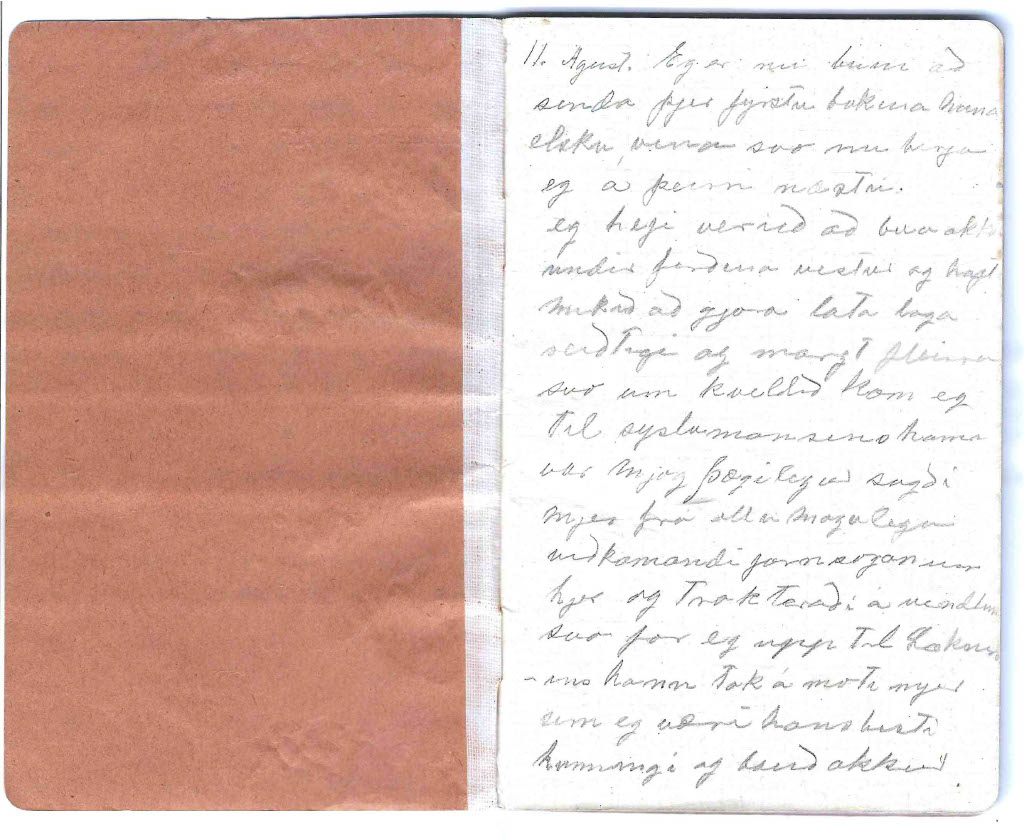 11. Agust. Eg er nu buin að
senda þjer fyrstu bokina
elsku vina svo nu byrja
eg á þeirri næstu.
eg hefi verið að bua okk
undir ferðina vestur og haft
mikið að gjora lata laga
reiðtigi og margt fleirra
svo um kveldið kom eg
til syslumansins hann
var mjog þægilegur sagði
mjer frá ollu mogulegu
viðkomandi fornsogonum
hjer og trakteraði a vindlum
svo for eg upp til Læknis
-ins hann tok á moti mjer
sem eg væri hans besti
kunningi og bauð okkur